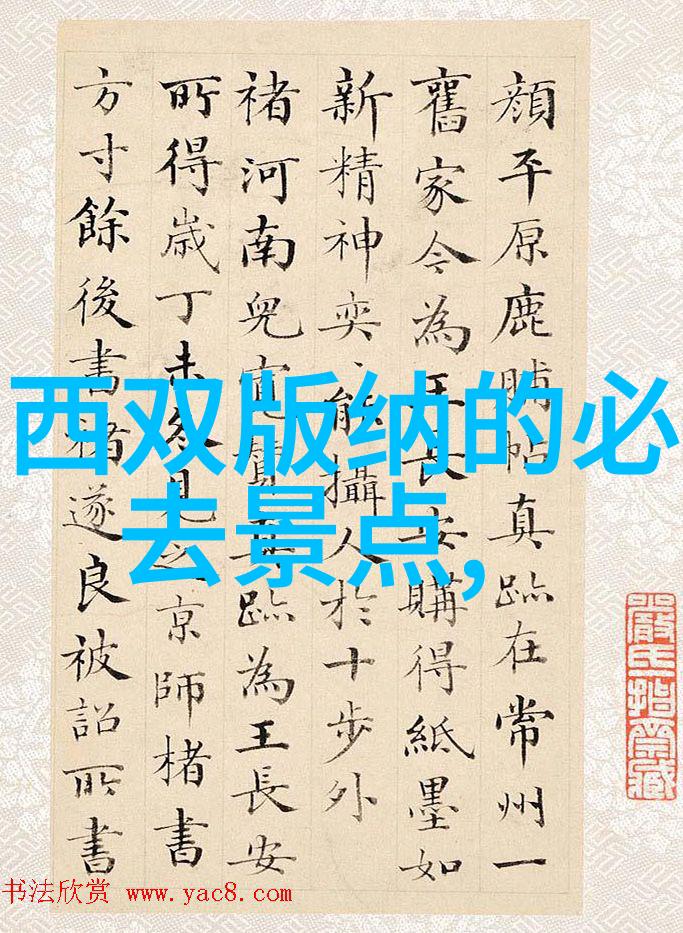 顏平原鹿脯帖真跡在常州一
舊家今為王長安購得紙墨如
新精神奕〻能攝人於十步外
褚河南兒寬贊真跡為王長安
所得歲丁未見之京師楮書
方寸餘後書楮遂良被詔所書
西双版纳的必
去景点,
书法欣赏 www.yac8.com